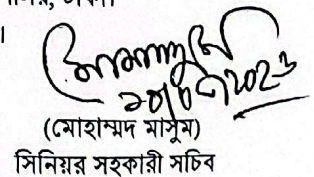 ।
১০/০৭/২০২৩
(মোহাম্মদ মাসুম)
সিনিয়র সহকারী সচিব